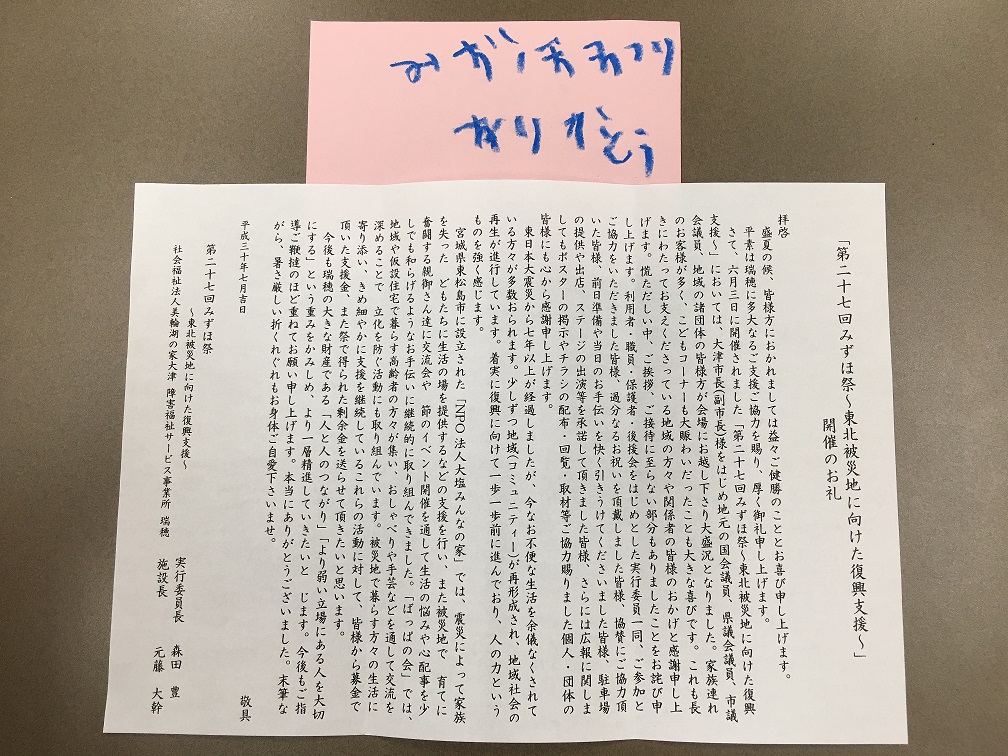 みずほまつり
ありがとう
「第二十七回みずほ祭～東北被災地に向けた復興支援～」
開催のお礼
拝啓
盛夏の候、皆様方におかれましては益々ご健勝のこととお喜び申し上げます。
平素は瑞穂に多大なるご支援ご協力を賜り、厚く御礼申し上げます。
さて、六月三日に開催されました「第二十七回みずほ祭～東北被災地に向けた復興
支援～」においては、大津市長(副市長)様をはじめ地元の国会議員、県議会議員、市議
会議員、地域の諸団体の皆様方が会場にお越し下さり大盛況となりました。家族連れ
のお客様が多く、こどもコーナーも大賑わいだったことも大きな喜びです。これも長
きにわたってお支えくださっている地域の方々や関係者の皆様のおかげと感謝申し上
げます。慌ただしい中、ご挨拶、ご接待に至らない部分もありましたことをお詫び申
し上げます。利用者・職員・保護者・後援会をはじめとした実行委員一同、ご参加と
ご協力をいただきました皆様、過分なるお祝いを頂戴しました皆様、協賛にご協力頂
いた皆様、前日準備や当日のお手伝いを快く引きうけてくださいました皆様、駐車場
の提供や出店、ステージの出演等を承諾して頂きました皆様、さらには広報に関しま
してもポスターの掲示やチラシの配布・回覧・取材等ご協力賜りました個人・団体の
皆様にも心から感謝申し上げます。
東日本大震災から七年以上が経過しましたが、今なお不便な生活を余儀なくされて
いる方々が多数おられます。少しずつ地域(コミュニティー)が再形成され、地域社会の
再生が進行しています。着実に復興に向けて一歩一歩前に進んでおり、人の力という
ものを強く感じます。
宮城県東松島市に設立された「NPO法人大塩みんなの家」では、震災によって家族
を失った どもたちに生活の場を提供するなどの支援を行い、また被災地で 育てに
奮闘する親御さん達に交流会や 節のイベント開催を通して生活の悩みや心配事を少
しでも和らげるようなお手伝いに継続的に取り組んできました。「ばっぱの会」では、
地域や仮設住宅で暮らす高齢者の方々が集い、おしゃべりや手芸などを通して交流を
深めることで 立化を防ぐ活動にも取り組んでいます。被災地で暮らす方々の生活に
寄り添い、きめ細やかに支援を継続しているこれらの活動に対して、皆様から募金で
頂いた支援金、また祭で得られた剰余金を送らせて頂きたいと思います。
今後も瑞穂の大きな財産である「人と人のつながり」「より弱い立場にある人を大切
にする」という重みをかみしめ、より一層精進していきたいと じます。今後もご指
導ご鞭撻のほど重ねてお願い申し上げます。本当にありがとうございました。末筆な
がら、暑さ厳しい折くれぐれもお身体ご自愛下さいませ。
敬具
平成三十年七月吉日
第二十七回みずほ祭
～東北被災地に向けた復興支援～
実行委員長 森田 豊
社会福祉法人美輪湖の家大津 障害福祉サービス事業所 瑞穂 施設長 元藤 大幹